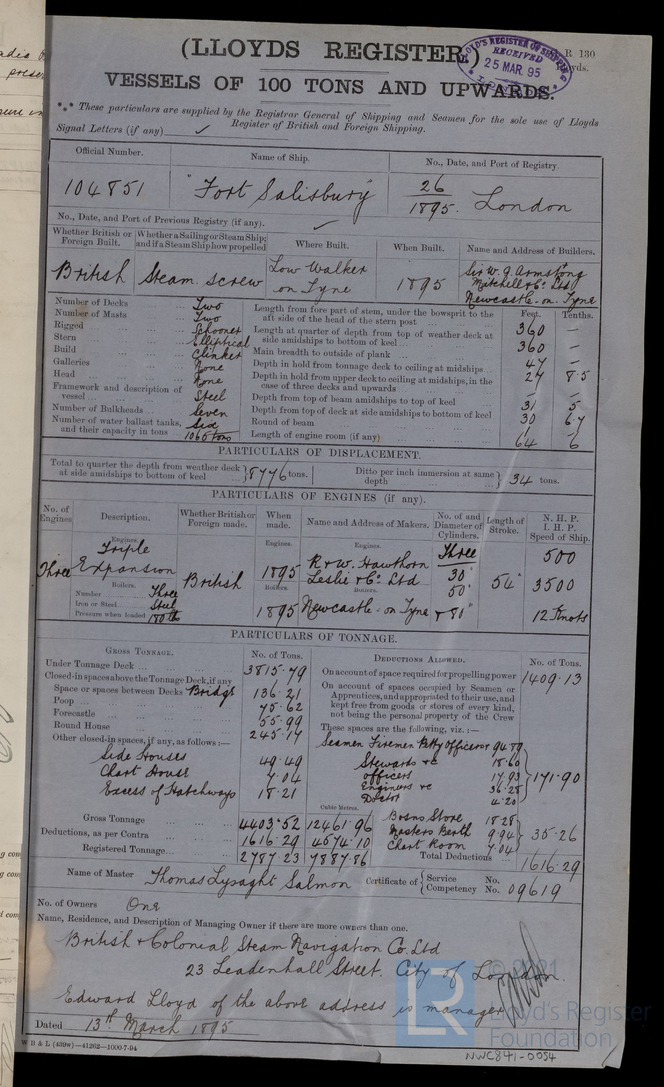 (LLOYDS REGISTER)
LLOYD'S REGISTER OF SHIPPING
RECEIVED
25 MAR 95
R 130
VESSELS OF 100 TONS AND UPWARDS.
*** These particulars are supplied by the Registrar General of Shipping and Seamen for the sole use of Lloyds
Register of British and Foreign Shipping.
Signal Letters (if any) ✓
Official Number. Name of Ship. No., Date, and Port of Registry.
104851 "Fort Salisbury" 26/1895. London
No., Date, and Port of Previous Registry (if any). ✓
Whether British or Foreign Built. Whether a Sailing or Steam Ship; and if a Steam Ship how propelled Where Built. When Built. Name and Address of Builders.
British Steam. Screw Low Walker on Tyne 1895 Sir W. G. Armstrong Mitchell & Co. Ltd Newcastle-on-Tyne
Number of Decks ... Two
Number of Masts ... Two
Rigged ... Schooner
Stern ... Elliptical
Build ... Clinker
Galleries ... None
Head ... None
Framework and description of vessel ... Steel
Number of Bulkheads ... Seven
Number of water ballast tanks, and their capacity in tons Six 1065 tons
Feet. Tenths.
Length from fore part of stem, under the bowsprit to the aft side of the head of the stern post ... 360 –
Length at quarter of depth from top of weather deck at side amidships to bottom of keel ... 360 –
Main breadth to outside of plank ... 47 –
Depth in hold from tonnage deck to ceiling at midships 27 8.5
Depth in hold from upper deck to ceiling at midships, in the case of three decks and upwards – –
Depth from top of beam amidships to top of keel 31 5
Depth from top of deck at side amidships to bottom of keel 30 67
Round of beam
Length of engine room (if any) 64 6
PARTICULARS OF DISPLACEMENT.
Total to quarter the depth from weather deck at side amidships to bottom of keel } 8776 tons. Ditto per inch immersion at same depth } 34 tons.
PARTICULARS OF ENGINES (if any).
No. of Engines Description. Whether British or Foreign made. When made. Name and Address of Makers. No. of and Diameter of Cylinders. Length of Stroke. N. H. P. I. H. P. Speed of Ship.
Engines. Engines. Engines.
Three Triple Expansion British 1895 R & W. Hawthorn Leslie & Co. Ltd Three 30" 50" & 81" 54" 500 3500 12 Knots
Boilers. Boilers. Boilers.
Number Three
Iron or Steel Steel
Pressure when loaded 180 lb
1895 Newcastle-on Tyne
PARTICULARS OF TONNAGE.
GROSS TONNAGE. No. of Tons.
Under Tonnage Deck ... 3815.79
Closed-in spaces above the Tonnage Deck, if any
Space or spaces between Decks Bridge 136.21
Poop ... 75.62
Forecastle ... 55.99
Round House ... 245.17
Other closed-in spaces, if any, as follows:—
Side Houses 49.49
Chart House 7.04
Excess of Hatchways 18.21
Cubic Metres.
Gross Tonnage 4403.52 12461.96
Deductions, as per Contra 1616.29 4574.10
Registered Tonnage 2787.23 7887.86
DEDUCTIONS ALLOWED. No. of Tons.
On account of space required for propelling power 1409.13
On account of spaces occupied by Seamen or Apprentices, and appropriated to their use, and kept free from goods or stores of every kind, not being the personal property of the Crew
These spaces are the following, viz.:—
Seamen Firemen Petty Officers 94.89
Stewards &c 18.60
Officers 17.93
Engineers &c 36.28
Doctor 4.20
} 171.90
Bosns Store 18.28
Masters Berth 9.94
Chart Room 7.04
} 35.26
Total Deductions ... 1616.29
Name of Master Thomas Lysaght Salmon Certificate of { Service No. Competency No. 09619
No. of Owners One
Name, Residence, and Description of Managing Owner if there are more owners than one.
British & Colonial Steam Navigation Co. Ltd
23 Leadenhall Street. City of London.
Edward Lloyd of the above address is manager
Dated 13th March 1895
W B & L (439w)—41262—1000-7-94
LR
© 2021
Lloyd's Register
Foundation
NWC841-0054